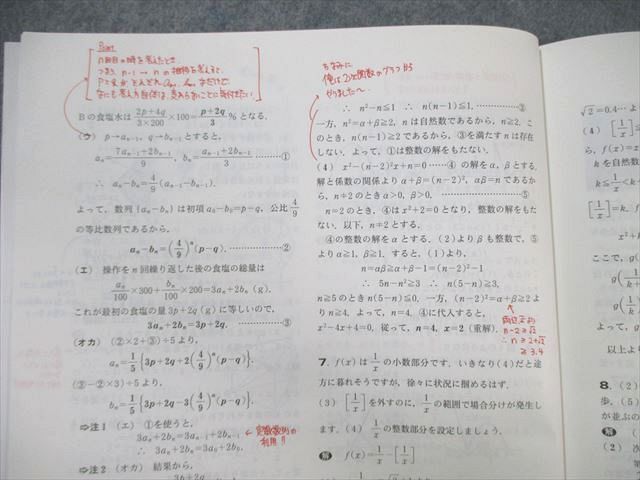 Point
Bの食塩水は (2p+4q)/(3×200)×100=(p+2q)/3 % となる．
(ウ) p→aₙ₋₁，q→bₙ₋₁とすると，
aₙ=(7aₙ₋₁+2bₙ₋₁)/9，bₙ=(aₙ₋₁+2bₙ₋₁)/3 ………①
∴ aₙ−bₙ=4/9(aₙ₋₁−bₙ₋₁)．
よって，数列{aₙ−bₙ}は初項 a₀−b₀=p−q，公比 4/9
の等比数列であるから，
aₙ−bₙ=(4/9)ⁿ(p−q)．………②
(エ) 操作を n 回繰り返した後の食塩の総量は
aₙ/100×300+bₙ/100×200=3aₙ+2bₙ (g)．
これが最初の食塩の量 3p+2q (g) に等しいので，
3aₙ+2bₙ=3p+2q．………③
(オカ) (②×2+③)÷5 より，
aₙ=1/5{3p+2q+2(4/9)ⁿ(p−q)}．
(③−②×3)÷5 より，
bₙ=1/5{3p+2q−3(4/9)ⁿ(p−q)}．
⇒注1 (エ) ①を使うと，
3aₙ+2bₙ=3aₙ₋₁+2bₙ₋₁
← 定数数列の
利用!!
∴ 3aₙ+2bₙ=3a₀+2b₀．
⇒注2 (オカ) 結果から，
3p+2q
ちなみに
俺は2次関数のグラフから
やりました〜
∴ n²−n≦1 ∴ n(n−1)≦1，………③
一方，n²=α+β≧2，n は自然数であるから，n≧2．こ
のとき，n(n−1)≧2 であるから，③を満たす n は存在
しない．よって，①は整数の解をもたない．
(4) x²−(n−2)²x+n=0 ……④ の解を α，β とする．
解と係数の関係より α+β=(n−2)²，αβ=n であるか
ら，n≠2 のとき α>0，β>0．………⑤
n=2 のとき，④は x²+2=0 となり，整数の解をもた
ない．以下，n≠2 とする．
④の整数の解を α とする．(2)より β も整数で，⑤
より α≧1，β≧1．すると，(1)より，
n=αβ≧α+β−1=(n−2)²−1
∴ 5n−n²≧3 ∴ n(5−n)≧3．
n≧5 のとき n(5−n)≦0．一方，(n−2)²=α+β≧2 よ
り n≧4．よって，n=4．④に代入すると，
x²−4x+4=0．従って，n=4，x=2 (重解)．
n−2≧√2
∴ n≧2+√2
≧3.4
7. f(x) は 1/x の小数部分です．いきなり(4)だと途
方に暮れそうですが，徐々に状況に掴めるはず．
(3) [1/x] を外すのに，1/x の範囲で場合分けが発生し
ます．(4) 1/x の整数部分を設定しましょう．
解 f(x)=1/x−[1/x]
√2=0.4…よ
(4) [1/x]
ら，f(x)=x
k を自然数
k≦1/x<k+
[1/x]=k，f
x²+k
ここで，g(
g(1/k
g(1/k+
よって，g(
以上より，
8.
歩，(5)
が並ぶの
解 (1)
(2) 次